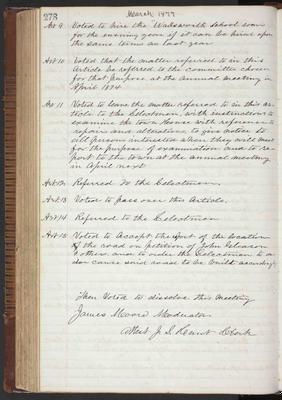 278
March 1877
Art 9 Voted to hire the Wadsworth School room
for the ensuing year if it can be hired upon
the same terms as last year
Art 10 Voted that the matter referred to in this
Article be referred to the committee chosen
for that purpose at the annual meeting in
April 1874
Art 11 Voted to leave the matter referred to in this ar-
ticle to the Selectmen, with instructions to
examine the town House with reference to
repairs and alterations, to give notice to
all persons interested when they will meet
for the purpose of examination and to re-
port to the town at the annual meeting
in April next
Art 12 Referred to the Selectmen.
Art 13 Voted to pass over this Article.
Art 14 Referred to the Selectmen
Art 15 Voted to Accept the report of the location
of the road on petition of John Gleason
& others and to order the Selectmen to
cause said road to be built accordingly
Then Voted to dissolve this meeting
James Moore Moderator
Attest J. S. Hunt Clerk